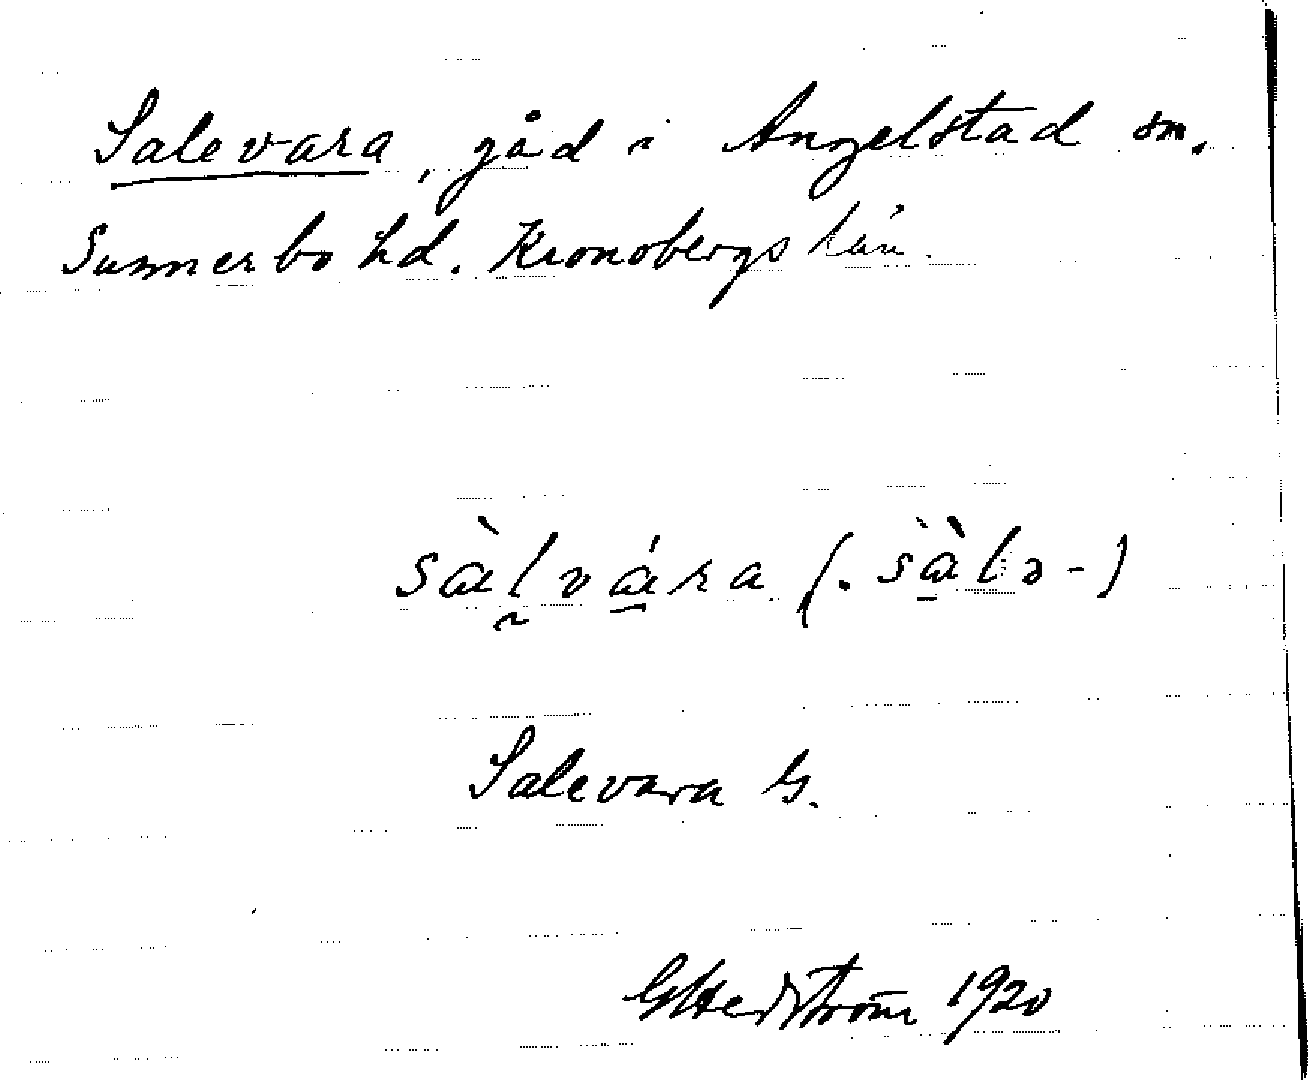 Salevara, gåd i Angelstad sn.
Sunnerbo hd. Kronobergs län.
sàl̰vá̱ra (. sà̱lə-)
Salevara G.
G Hedström 1920